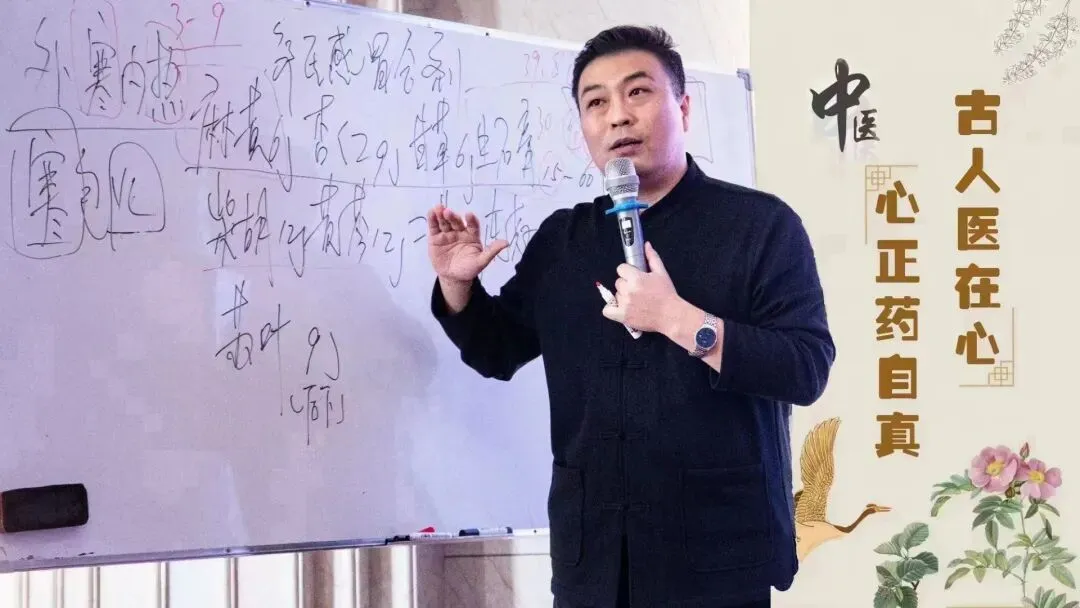 3-9
外寒内热 感冒合剂 39.5
麻黄6g 杏仁9g 甘草6g 生石膏30
15-60
寒包火
柴胡12g 黄芩12g
苏叶 9g
后下
中医
古人医在心
心正药自真